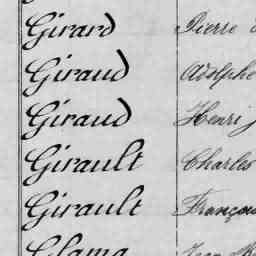 Girard Pierre
Giraud Adolphe
Giraud Henri J
Girault Charles
Girault François
Glama Jean